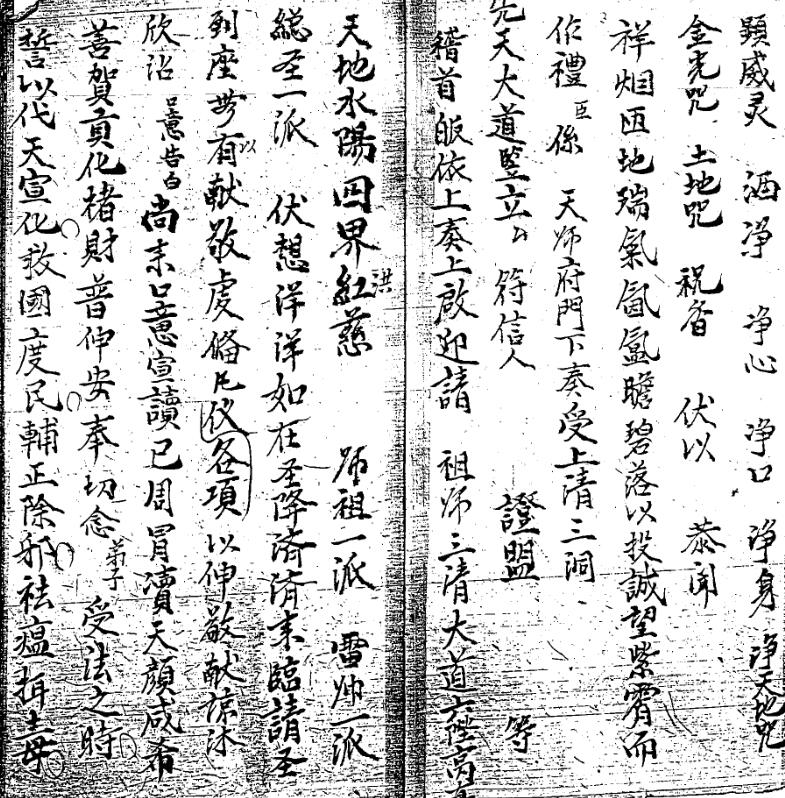 顕威灵 洒净 净心 净口 净身 净天地咒
金光咒 土地咒 祝香 伏以 恭闻
祥烟匝地瑞氣氤氲瞻碧落以投誠望紫霄而
作禮 臣係 天师府門下奏受上清三洞
先天大道竪立 符信人 證盟 等
稽首皈依上奏上啟迎請 祖师三清大道六陛高
天地水陽四界紅洪慈 师祖一派 雷帅一派
総圣一派 伏想洋洋如在圣降済済来臨請圣
到座 有以献敬虔俻凡仪各項以伸敬献諒沐
欣沾 意告白 尚来意宣讀已周冒瀆天顔咸希
善賀貢化楮財普伸安奉切念弟子受法之時
誓以代天宣化救國度民輔正除邪祛瘟